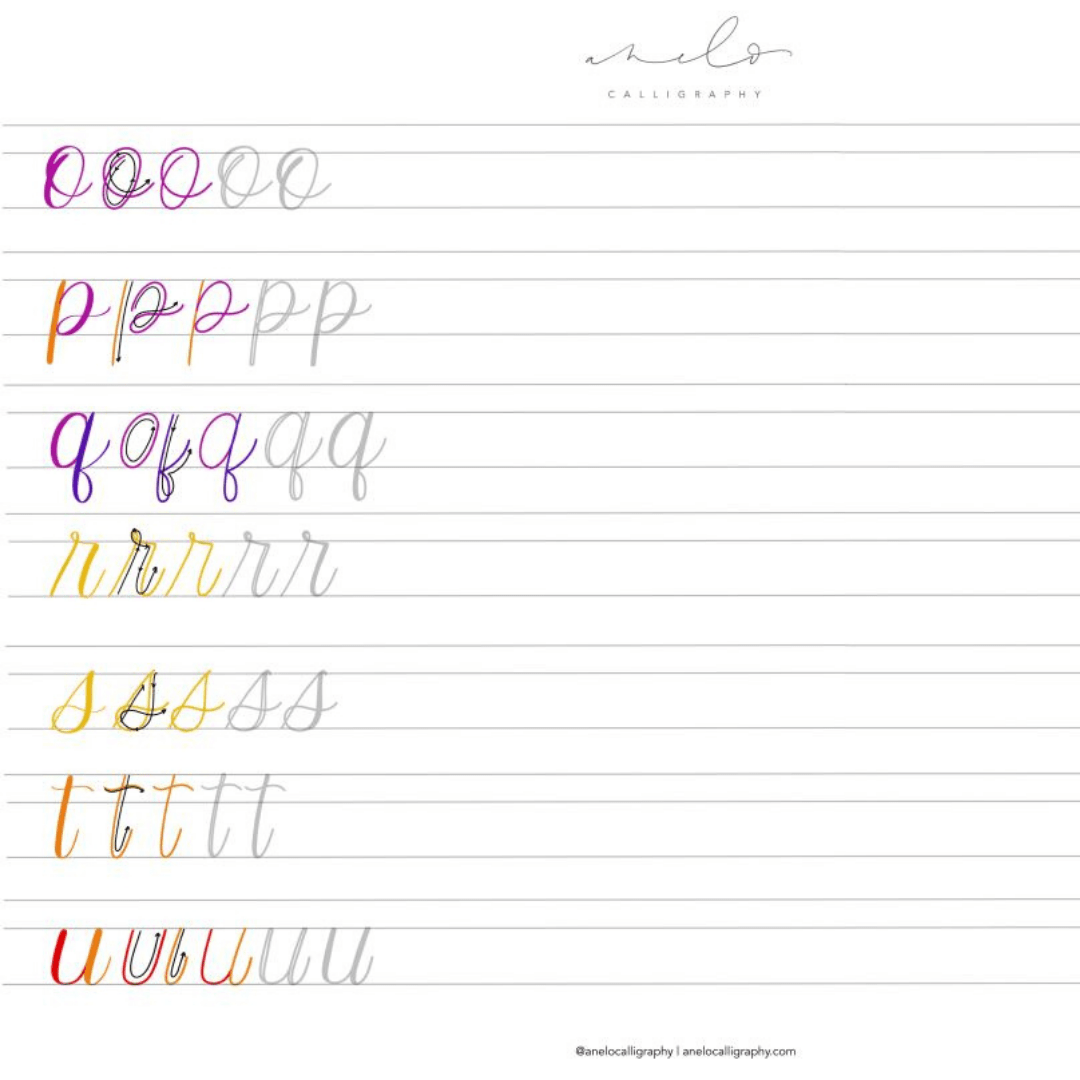 anelo
CALLIGRAPHY
o o o o o
p p p p p
q q q q q
r r r r r
s s s s s
t t t t t
u u u u u
@anelocalligraphy | anelocalligraphy.com